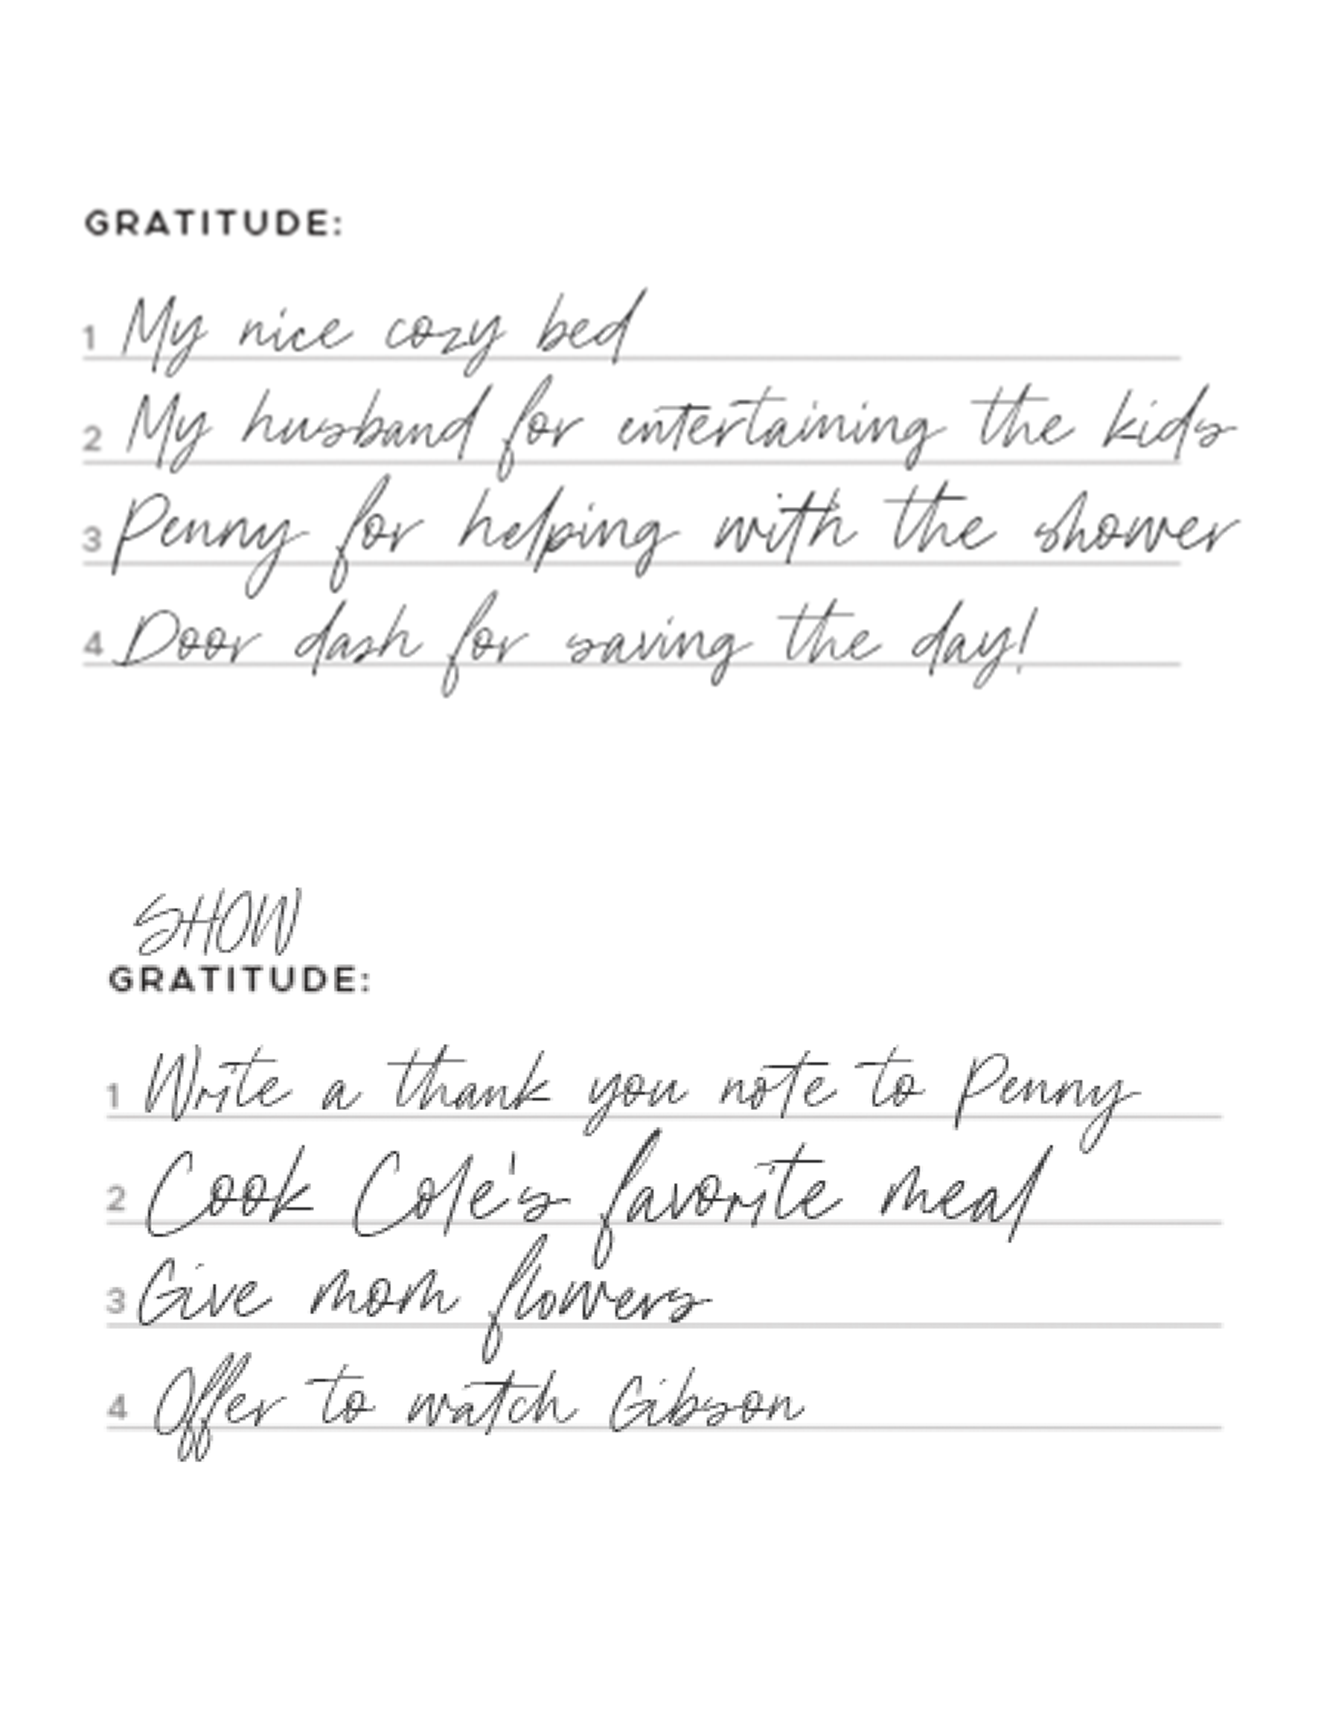 GRATITUDE:
1 My nice cozy bed
2 My husband for entertaining the kids
3 Penny for helping with the shower
4 Door dash for saving the day!
SHOW
GRATITUDE:
1 Write a thank you note to Penny
2 Cook Cole's favorite meal
3 Give mom flowers
4 Offer to watch Gibson